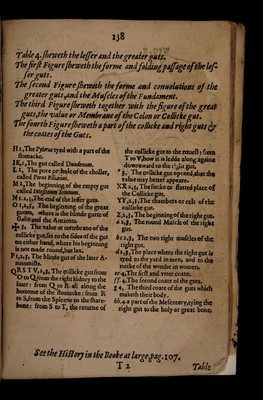 138
Table 4. sheweth the lesser and the greater guts.
The first Figure sheweth the forme and folding passage of the les-
ser guts.
The second Figure sheweth the forme and convolutions of the
greater guts, and the Muscles of the Fundament.
The third Figure sheweth together with the figure of the great
guts, the value or Membrane of the Colon or Collicke gut.
The fourth Figure sheweth a part of the collicke and right guts &
the coates of the Guts.
H 1, The Pylorus tyed with a part of the
stomacke.
I K 1, The gut called Duodenum.
L 1, The pore or hole of the choller,
called Porus Biliarius.
M 1, The beginning of the empty gut
called Intestinum Ieiunum.
N 1, 2, 3, The end of the lesser guts.
O 1, 2, 3, The beginning of the great
guttes, where is the blinde gutte of
Galen and the Ancients.
3, The value or membrane of the
collicke gut, set to the sides of the gut
on either hand, where his beginning
is not made round, but lax.
P 1, 2, 3, The blinde gut of the later A-
natomists.
Q R S T V, 2, 3, The collicke gut from
O to Q from the right kidney to the
liver: from Q to R all along the
bottome of the stomacke: from R
to S, from the Spleene to the share-
bone: from S to T, the returne of
the collicke gut to the navell: from
T to V, how it is ledde along againe
downeward to the right gut.
3, The collicke gut opened, that the
value may better appeare.
X X 2, 3, The sunke or flatted place of
the Collicke gut.
Y Y, 2, 3, The chambers or cels of the
collicke gut.
Z 2, 3, The beginning of the right gut.
a 2, 3, The round Muscle of the right
gut.
b c 2, 3, The two right muscles of the
right gut.
d 2, 3, The place where the right gut is
tyed to the yard in men, and to the
necke of the wombe in women.
4, The first and utter coate.
4, The second coate of the guts.
4, The third coate of the guts which
maketh three body.
4 a part of the Mesentery, tying the
right gut to the holy or great bone.
See the History in the Booke at large, pag. 107.
T 2
Table